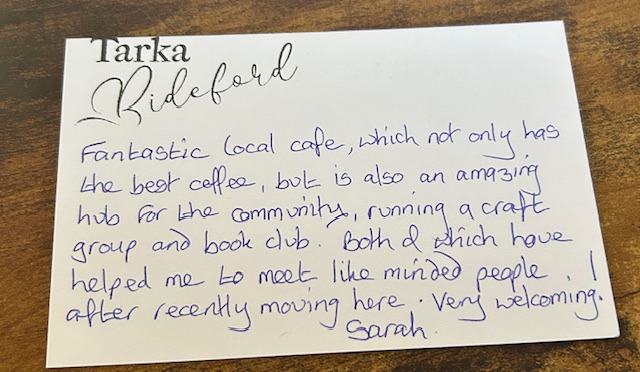 Tarka
Bideford
Fantastic local cafe, which not only has
the best coffee, but is also an amazing
hub for the community, running a craft
group and book club. Both of which have
helped me to meet like minded people. I
after recently moving here. Very welcoming.
Sarah.